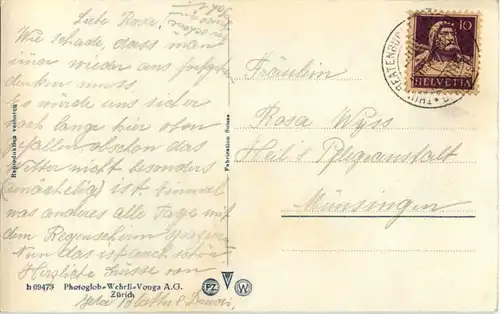 Liebe Rosa,
Wie schade, dass man
immer wieder ans
denken muss.
Es würde uns sicher
noch lange hier oben
gefallen obschon das
Wetter nicht besonders
ist. Einmal
was anderes alle Tage mit
dem Regenschirm
Nun das ist auch schön
Herzliche Grüsse von
Fräulein
Rosa Wyss
Heil & Pflegeanstalt
Münsingen
10
HELVETIA
BEATENBUCHT
Reproduction verboten
Fabrication Suisse
h 09473 Photoglob-Wehrli-Vouga A.G.
Zürich
PZ W